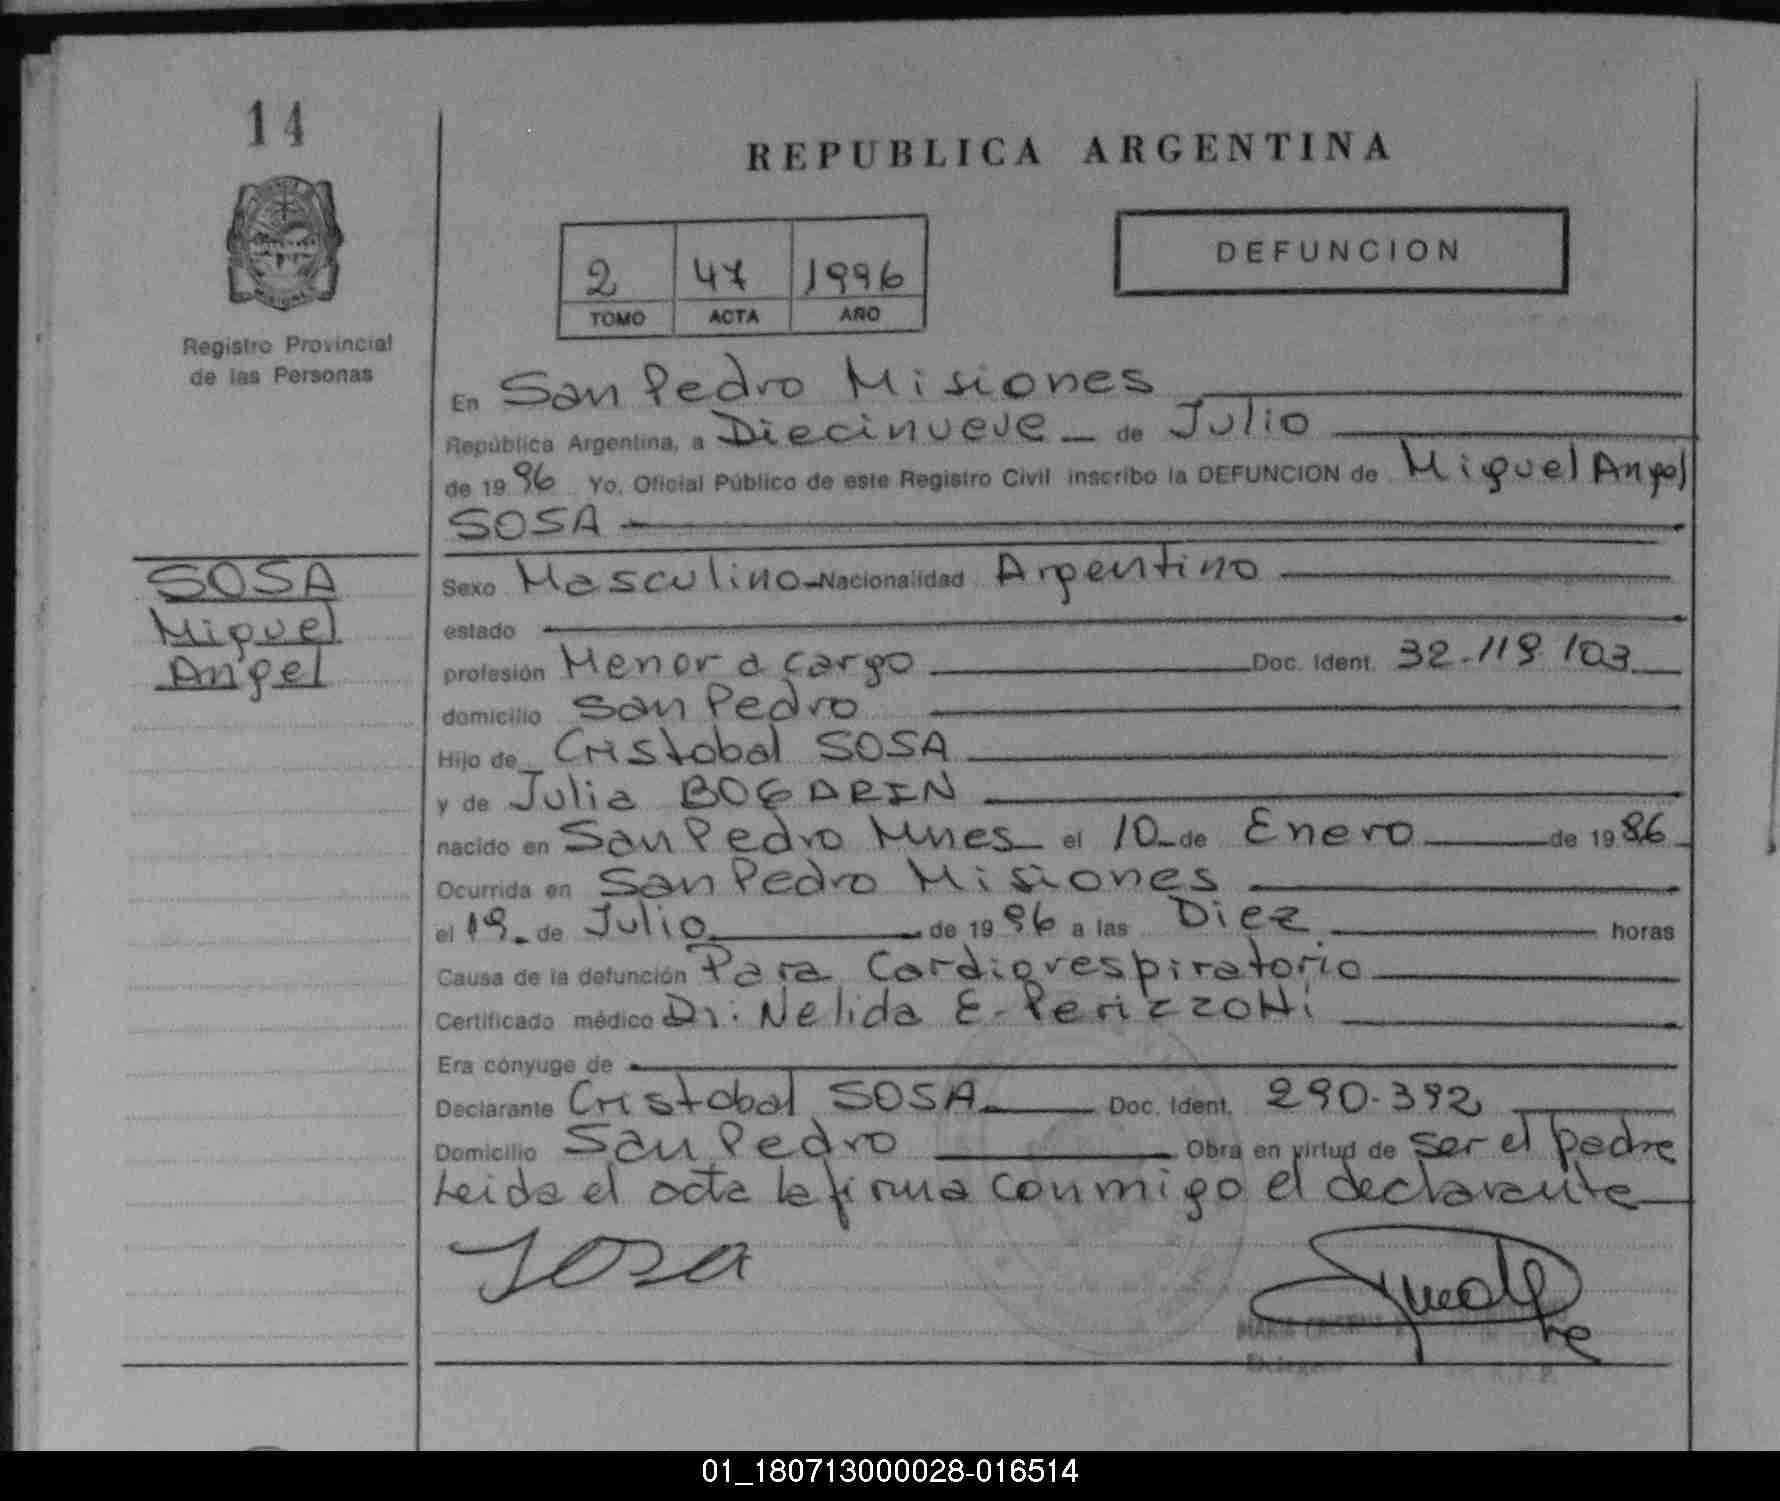 14
REPUBLICA ARGENTINA
DEFUNCION
2 47 1996
TOMO ACTA AÑO
Registro Provincial
de las Personas
En San Pedro Misiones
República Argentina, a Diecinueve de Julio
de 1996 Yo, Oficial Público de este Registro Civil inscribo la DEFUNCION de Miguel Angel
SOSA
SOSA
Miguel
Angel
Sexo Masculino Nacionalidad Argentino
estado
profesión Menor a cargo Doc. Ident. 32.119.103
domicilio San Pedro
Hijo de Cristobal SOSA
y de Julia BOGARIN
nacido en San Pedro Mnes el 10 de Enero de 1986
Ocurrida en San Pedro Misiones
el 19 de Julio de 1996 a las Diez horas
Causa de la defunción Para Cardiorespiratorio
Certificado médico Dr. Nelida E. Perizzotti
Era cónyuge de
Declarante Cristobal SOSA Doc. Ident. 290.392
Domicilio San Pedro Obra en virtud de ser el padre
Leida el acta la firma conmigo el declarante
Sosa
01_180713000028-016514